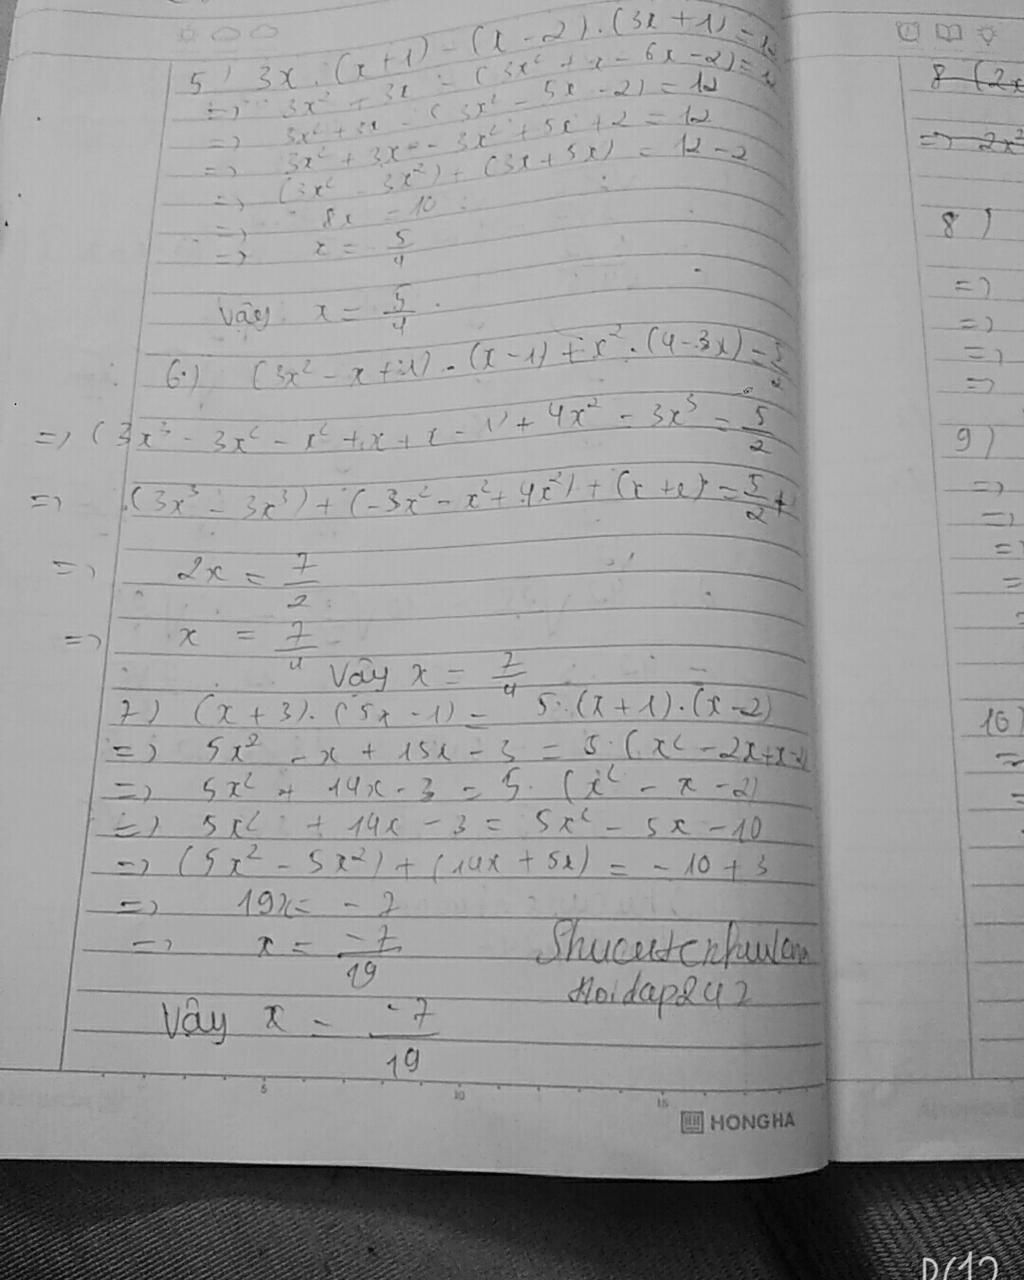 5) 3x . (x+1) - (x-2).(3x+1) = 12
=> 3x² + 3x - (3x² + x - 6x - 2) = 12
=> 3x² + 3x - (3x² - 5x - 2) = 12
=> 3x² + 3x - 3x² + 5x + 2 = 12
=> (3x² - 3x²) + (3x + 5x) = 12 - 2
=> 8x = 10
=> x = 5/4
Vậy x = 5/4
6.) (3x² - x + 1) . (x - 1) + x² . (4 - 3x) = 5/2
=> (3x³ - 3x² - x² + x + x - 1) + 4x² - 3x³ = 5/2
=> (3x³ - 3x³) + (-3x² - x² + 4x²) + (x + x) = 5/2 +
=> 2x = 7/2
=> x = 7/4
Vậy x = 7/4
7) (x + 3) . (5x - 1) = 5 . (x + 1) . (x - 2)
=> 5x² - x + 15x - 3 = 5 . (x² - 2x + x - 2
=> 5x² + 14x - 3 = 5 . (x² - x - 2)
=> 5x² + 14x - 3 = 5x² - 5x - 10
=> (5x² - 5x²) + (14x + 5x) = -10 + 3
=> 19x = -7
=> x = -7/19
Hoidap247
Vậy x = -7/19
5 10 15
HONGHA
8 (2x
=> 2x²
8)
=>
=>
=>
=>
9)
=>
=>
=>
=>
10)
=>
=>